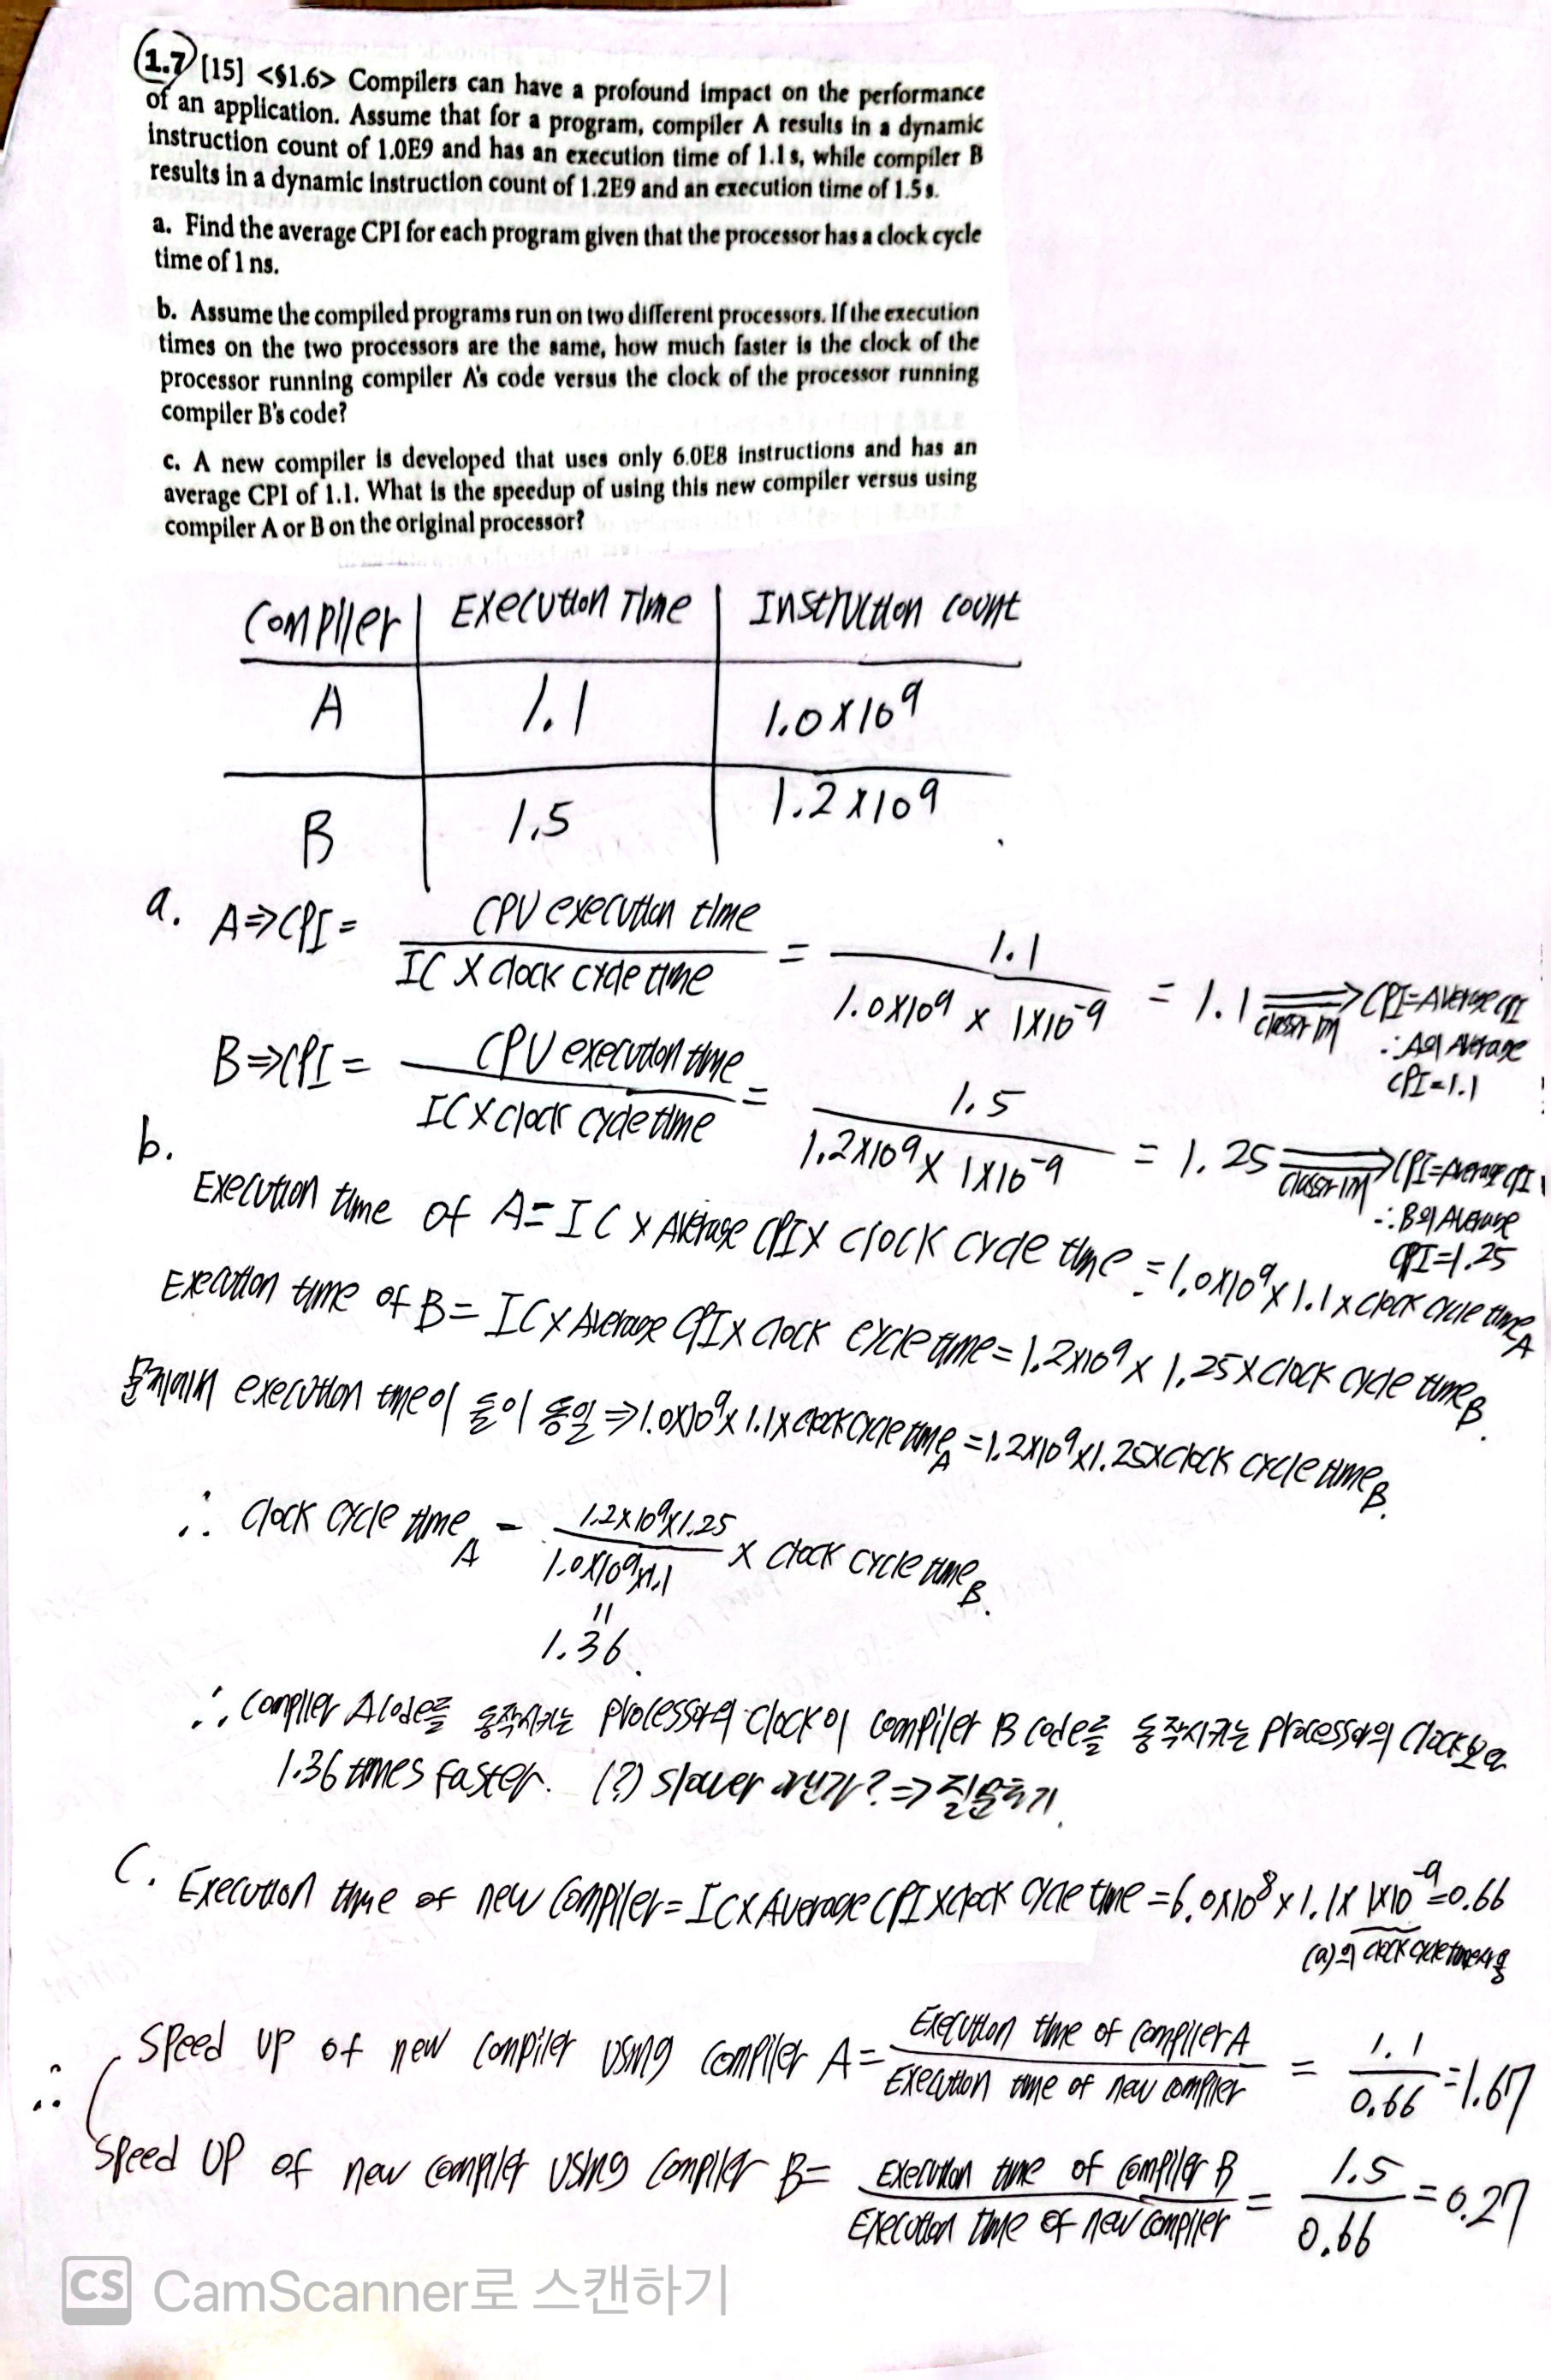 1.7 [15] <§1.6> Compilers can have a profound impact on the performance
of an application. Assume that for a program, compiler A results in a dynamic
instruction count of 1.0E9 and has an execution time of 1.1 s, while compiler B
results in a dynamic instruction count of 1.2E9 and an execution time of 1.5 s.
a. Find the average CPI for each program given that the processor has a clock cycle
time of 1 ns.
b. Assume the compiled programs run on two different processors. If the execution
times on the two processors are the same, how much faster is the clock of the
processor running compiler A's code versus the clock of the processor running
compiler B's code?
c. A new compiler is developed that uses only 6.0E8 instructions and has an
average CPI of 1.1. What is the speedup of using this new compiler versus using
compiler A or B on the original processor?
Compiler Execution Time Instruction count
A 1.1 1.0×10⁹
B 1.5 1.2×10⁹
a. A⇒CPI = CPU execution time / IC × clock cycle time = 1.1 / 1.0×10⁹ × 1×10⁻⁹ = 1.1 ⇒ CPI=Average CPI
∴ A의 Average
CPI=1.1
B⇒CPI = CPU execution time / IC × clock cycle time = 1.5 / 1.2×10⁹ × 1×10⁻⁹ = 1.25 ⇒ CPI=Average CPI
∴ B의 Average
CPI=1.25
b.
Execution time of A = IC × Average CPI × clock cycle time = 1.0×10⁹ × 1.1 × clock cycle time A
Execution time of B = IC × Average CPI × clock cycle time = 1.2×10⁹ × 1.25 × clock cycle time B.
문제에서 execution time이 둘이 동일 ⇒ 1.0×10⁹ × 1.1 × clock cycle time A = 1.2×10⁹ × 1.25 × clock cycle time B.
∴ clock cycle time A = 1.2×10⁹×1.25 / 1.0×10⁹×1.1 × clock cycle time B.
"
1.36.
∴ compiler A code를 동작시키는 processor의 clock이 compiler B code를 동작시키는 processor의 clock보다
1.36 times faster. (?) slower 아닌가? ⇒ 질문하기.
C. Execution time of new compiler = IC × Average CPI × clock cycle time = 6.0×10⁸ × 1.1 × 1×10⁻⁹ = 0.66
(a)의 clock cycle time사용
∴ Speed up of new compiler using compiler A = Execution time of compiler A / Execution time of new compiler = 1.1 / 0.66 = 1.67
Speed up of new compiler using compiler B = Execution time of compiler B / Execution time of new compiler = 1.5 / 0.66 = 0.27
CS CamScanner로 스캔하기